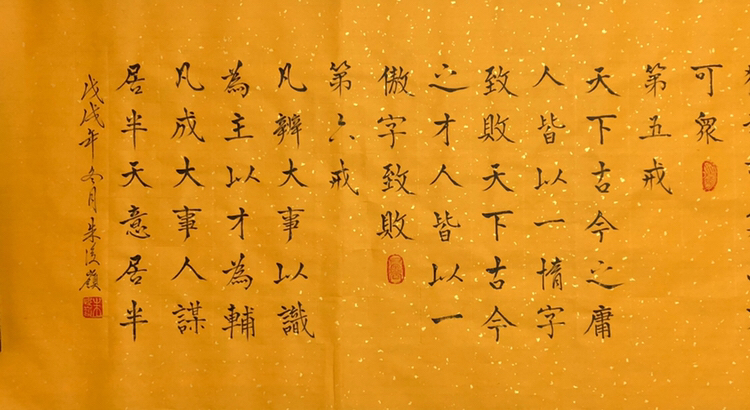 可眾
第五戒
天下古今之庸
人皆以一惰字
致敗天下古今
之才人皆以一
傲字致敗
第六戒
凡辦大事以識
為主以才為輔
凡成大事人謀
居半天意居半
戊戌年冬月朱嶺